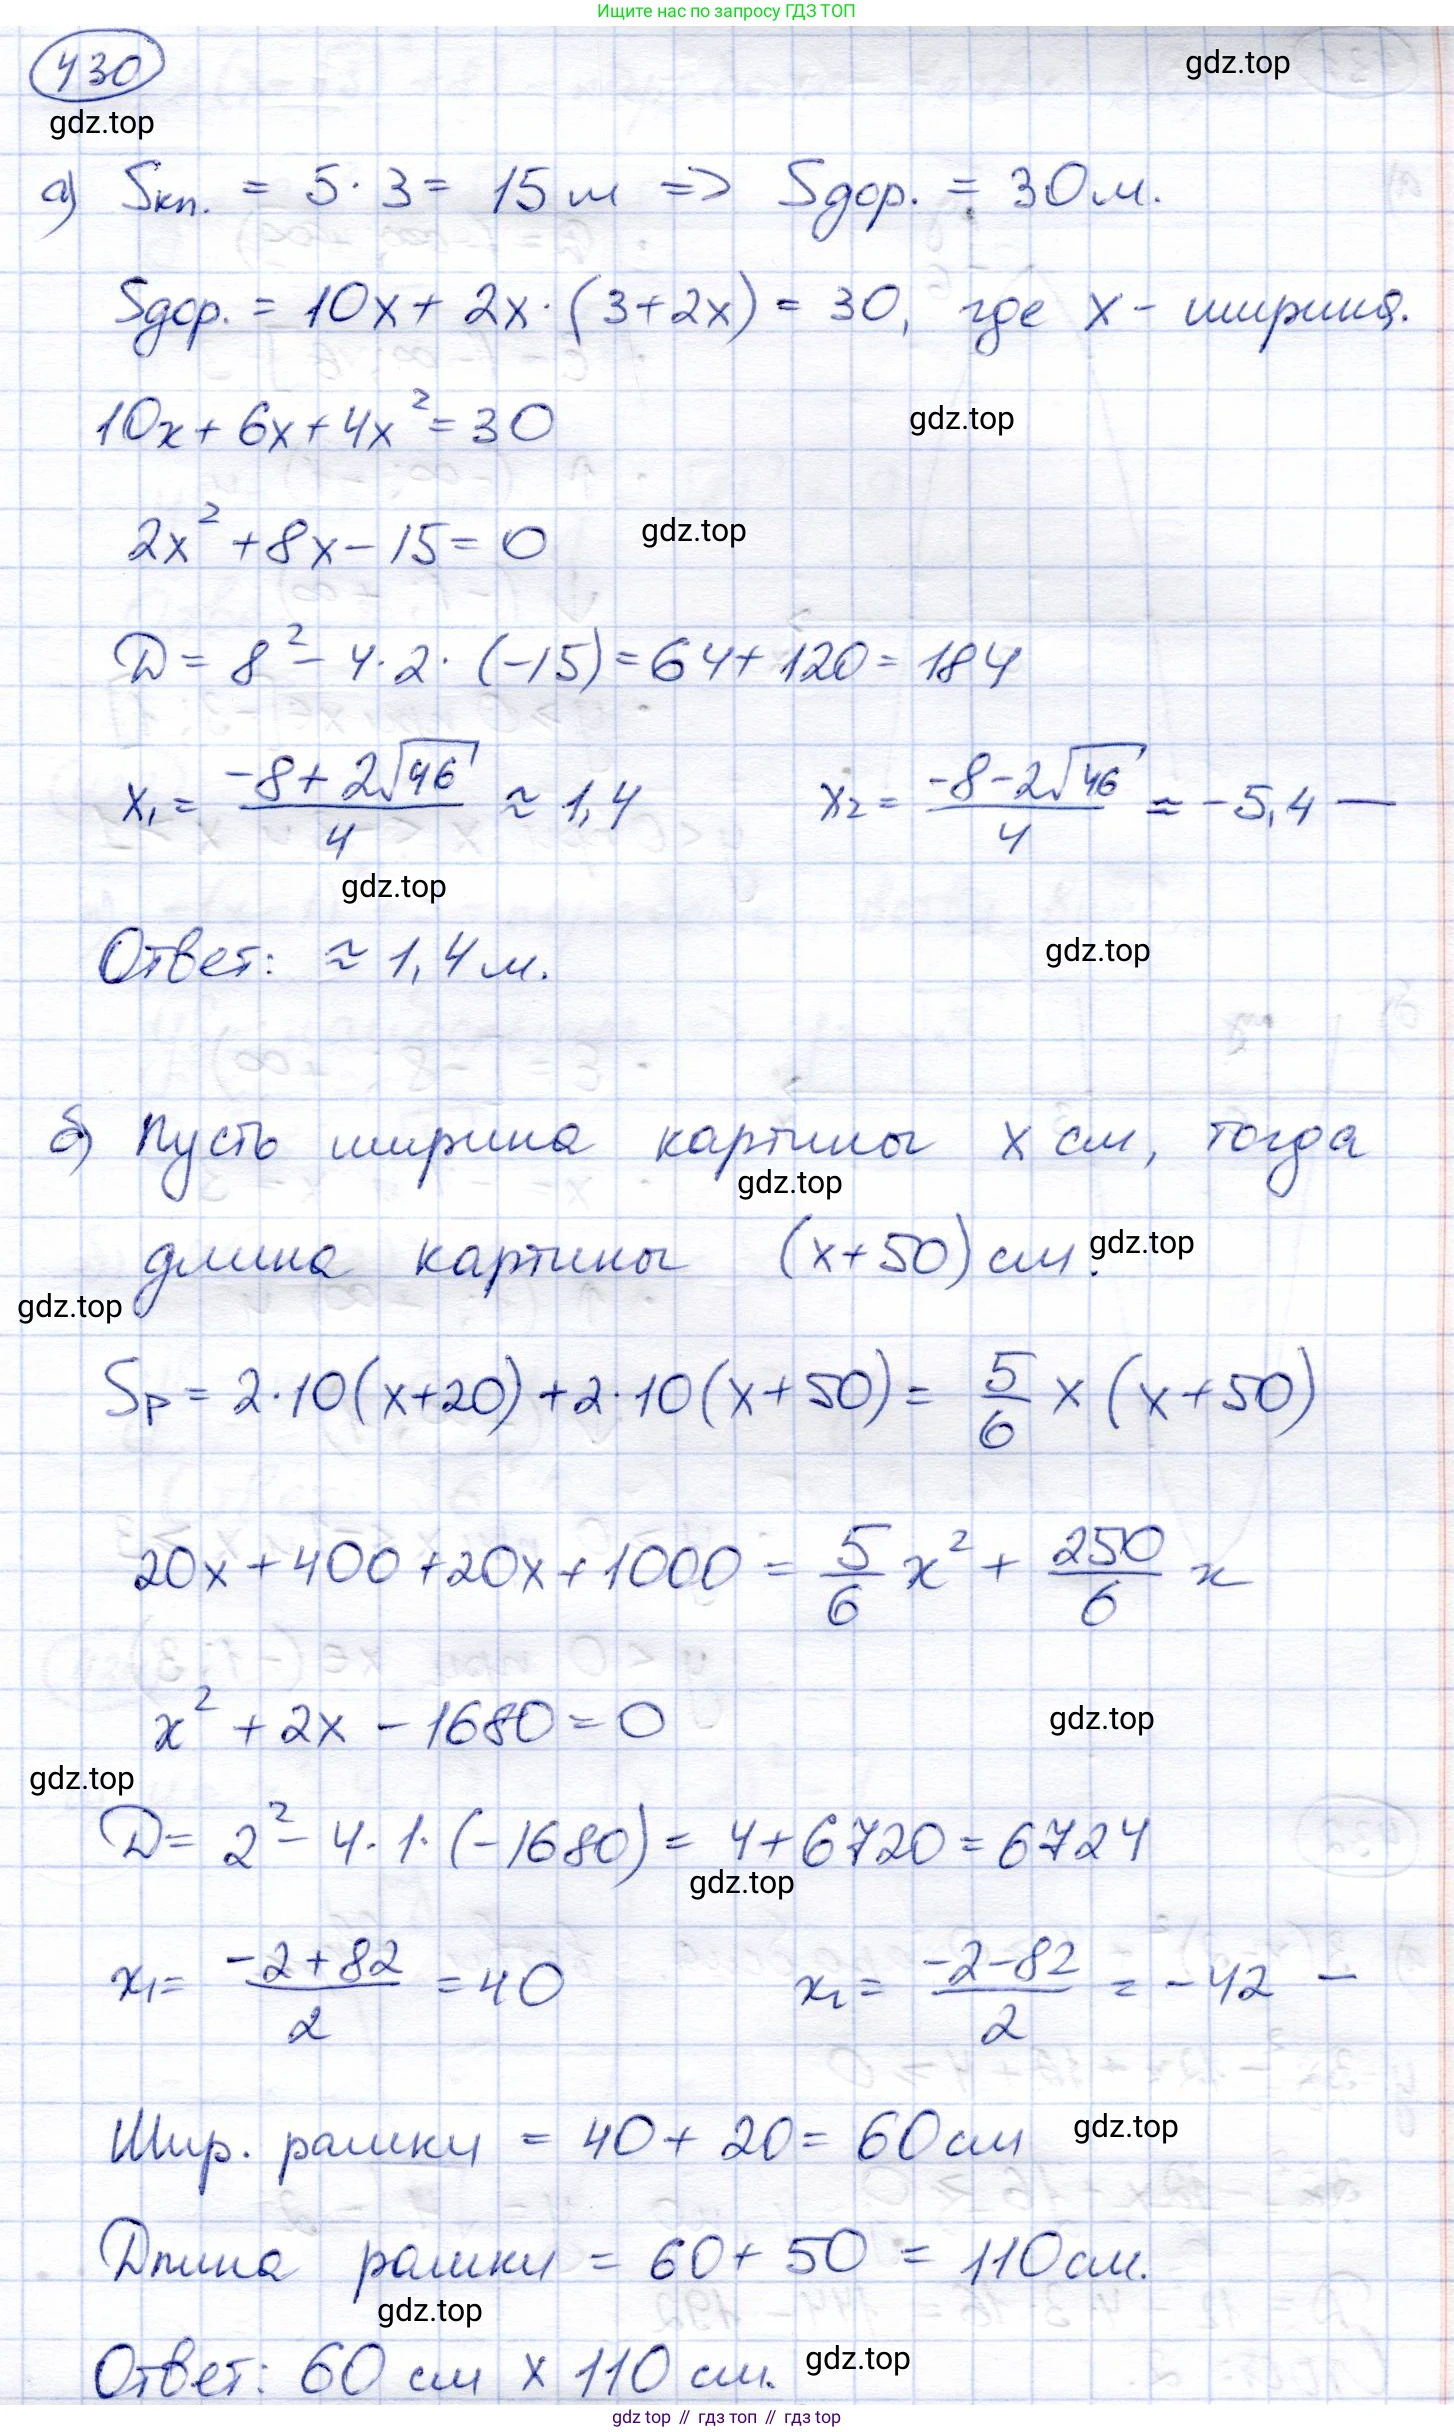 Ищите нас по запросу ГДЗ ТОП
430
gdz.top
gdz.top
а) Sкл. = 5 · 3 = 15 м => Sдор. = 30 м.
Sдор. = 10x + 2x · (3 + 2x) = 30, где x - ширина.
10x + 6x + 4x² = 30
gdz.top
2x² + 8x - 15 = 0
gdz.top
D = 8² - 4 · 2 · (-15) = 64 + 120 = 184
x₁ = (-8 + 2√46)/4 ≈ 1,4 x₂ = (-8 - 2√46)/4 ≈ -5,4 —
gdz.top
Ответ: ≈ 1,4 м.
gdz.top
б) Пусть ширина картины x см, тогда
gdz.top
длина картины (x + 50) см.
gdz.top
gdz.top
Sр = 2 · 10(x + 20) + 2 · 10(x + 50) = 5/6 x (x + 50)
20x + 400 + 20x + 1000 = 5/6 x² + 250/6 x
x² + 2x - 1680 = 0
gdz.top
gdz.top
D = 2² - 4 · 1 · (-1680) = 4 + 6720 = 6724
gdz.top
x₁ = (-2 + 82)/2 = 40 x₂ = (-2 - 82)/2 = -42 —
Шир. рамки = 40 + 20 = 60 см
gdz.top
Длина рамки = 60 + 50 = 110 см.
gdz.top
Ответ: 60 см x 110 см.
gdz.top
gdz top // гдз топ // гдз top